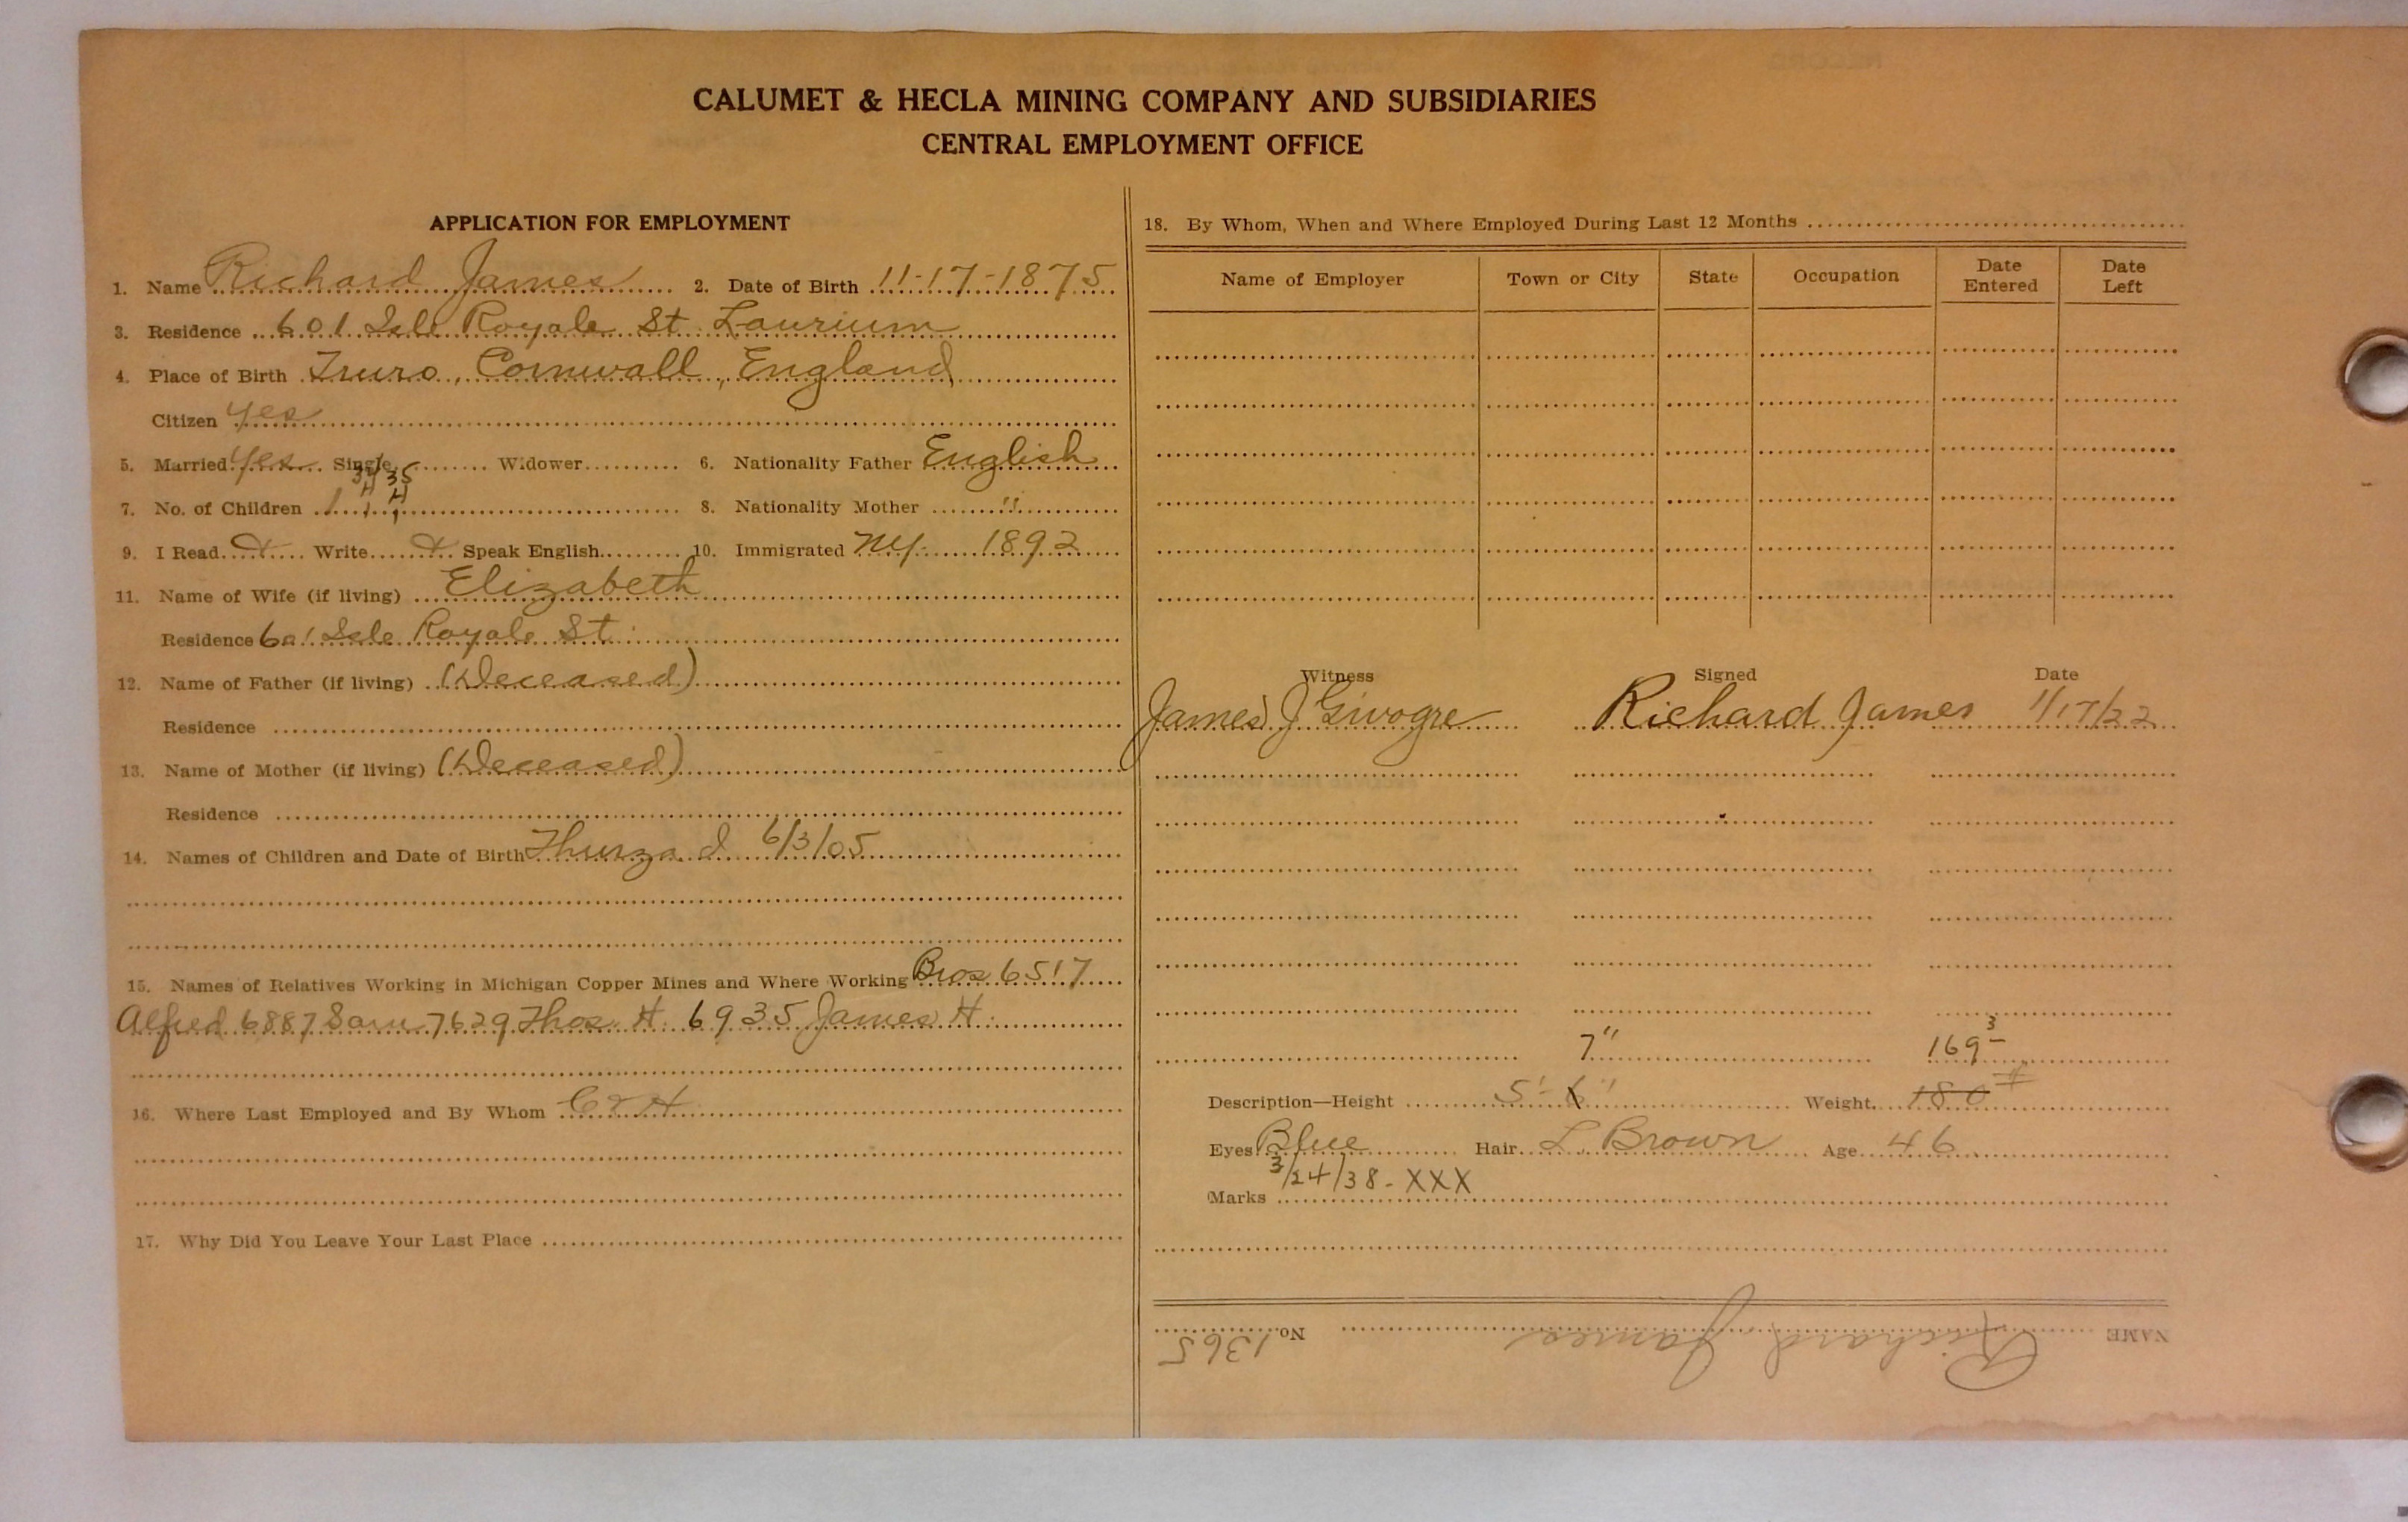 CALUMET & HECLA MINING COMPANY AND SUBSIDIARIES
CENTRAL EMPLOYMENT OFFICE
APPLICATION FOR EMPLOYMENT
1. Name Richard James 2. Date of Birth 11-17-1875
3. Residence 601 Isle Royale St Laurium
4. Place of Birth Truro, Cornwall, England
Citizen yes
5. Married yes Single Widower 6. Nationality Father English
34 35
7. No. of Children 1 8. Nationality Mother "
9. I Read x Write x Speak English 10. Immigrated NY 1892
11. Name of Wife (if living) Elizabeth
Residence 601 Isle Royale St
12. Name of Father (if living) (Deceased)
Residence
13. Name of Mother (if living) (Deceased)
Residence
14. Names of Children and Date of Birth Thurza I 6/3/05
15. Names of Relatives Working in Michigan Copper Mines and Where Working Bros 6517
Alfred 6887 Sam 7629 Thos H. 6935 James H.
16. Where Last Employed and By Whom C & H
17. Why Did You Leave Your Last Place
18. By Whom, When and Where Employed During Last 12 Months
Name of Employer Town or City State Occupation Date Entered Date Left
Witness Signed Date
James J Givogre Richard James 1/17/22
7" 169 3
Description—Height 5'-6" Weight 180 #
Eyes Blue Hair L. Brown Age 46
3/24/38 - XXX
Marks
NAME Richard James No. 1365